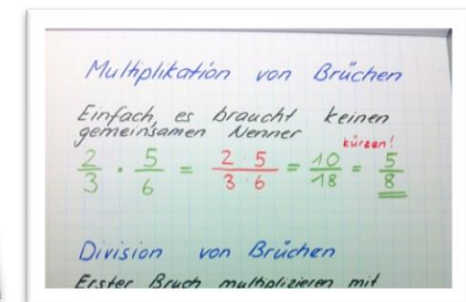 Multiplikation von Brüchen
Einfach, es braucht keinen
gemeinsamen Nenner
kürzen!
2/3 · 5/6 = 2·5/3·6 = 10/18 = 5/8
Division von Brüchen
Erster Bruch multiplizieren mit